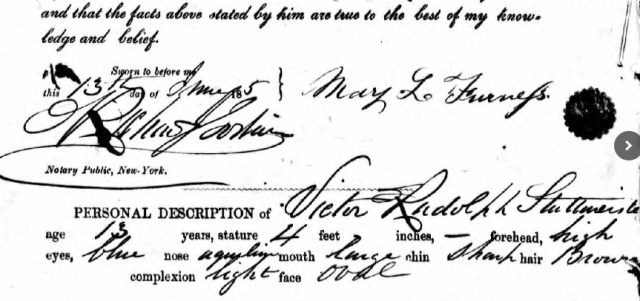 and that the facts above stated by him are true to the best of my know-
ledge and belief.
Sworn to before me
this 13th day of June 185 } Mary L Furness
Notary Public, New-York.
PERSONAL DESCRIPTION of Victor Rudolph Stuttmeister
age 13 years, stature 4 feet inches, — forehead, high
eyes, blue nose aquiline mouth large chin Sharp hair Brown
complexion light face oval